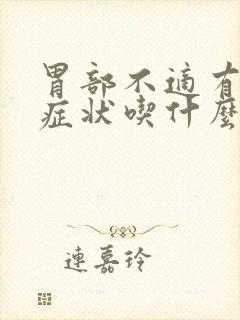 胃部不適有
症状喫什麼
連嘉玲